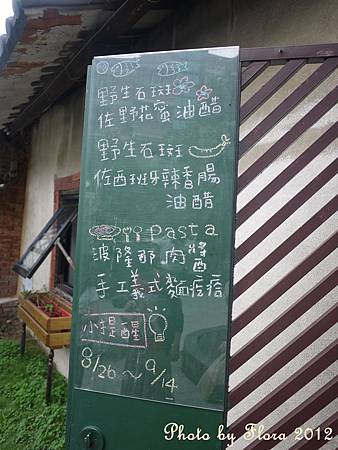 野生石斑
佐野花蜜油醋
野生石斑
佐西班牙辣香腸
油醋
pasta
波隆那肉醬
手工義式麵疙瘩
小提醒
8/26～9/14
Photo by Flora 2012